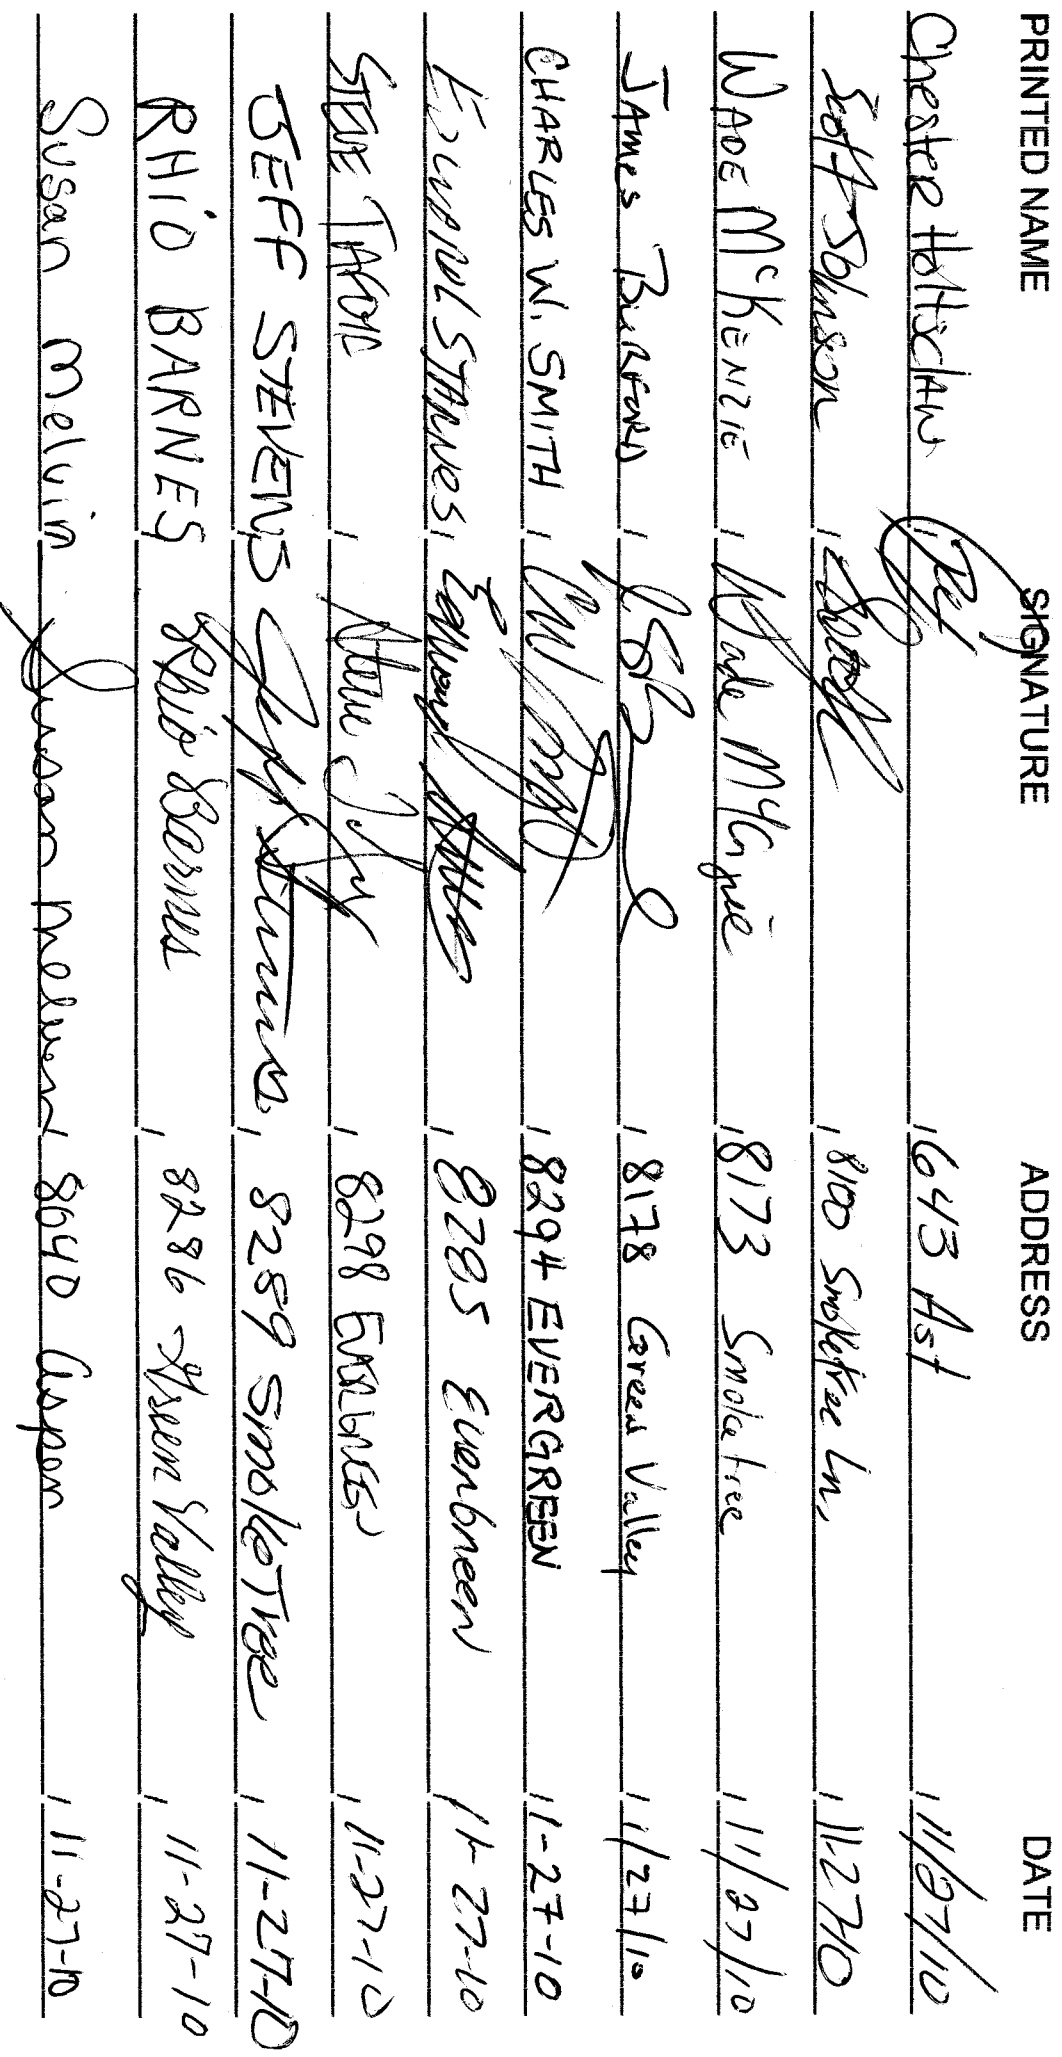 PRINTED NAME SIGNATURE ADDRESS DATE
Chester Holtsclaw 1643 Ast 11/27/10
Scott Johnson 8100 Smoketree Ln, 11-27-10
WADE McKENZIE Wade 8173 Smoketree 11/27/10
JAMES BURFORD 8178 Green Valley 11/27/10
CHARLES W. SMITH 8294 EVERGREEN 11-27-10
8285 Evergreen 11-27-10
STEVE Steve 8298 11-27-10
JEFF STEVENS Jeff Stevens 8289 SmokeTree 11-27-10
RHiO BARNES Rhio Barnes 8286 Green Valley 11-27-10
Susan Melvin Susan Melvin 8640 Aspen 11-27-10